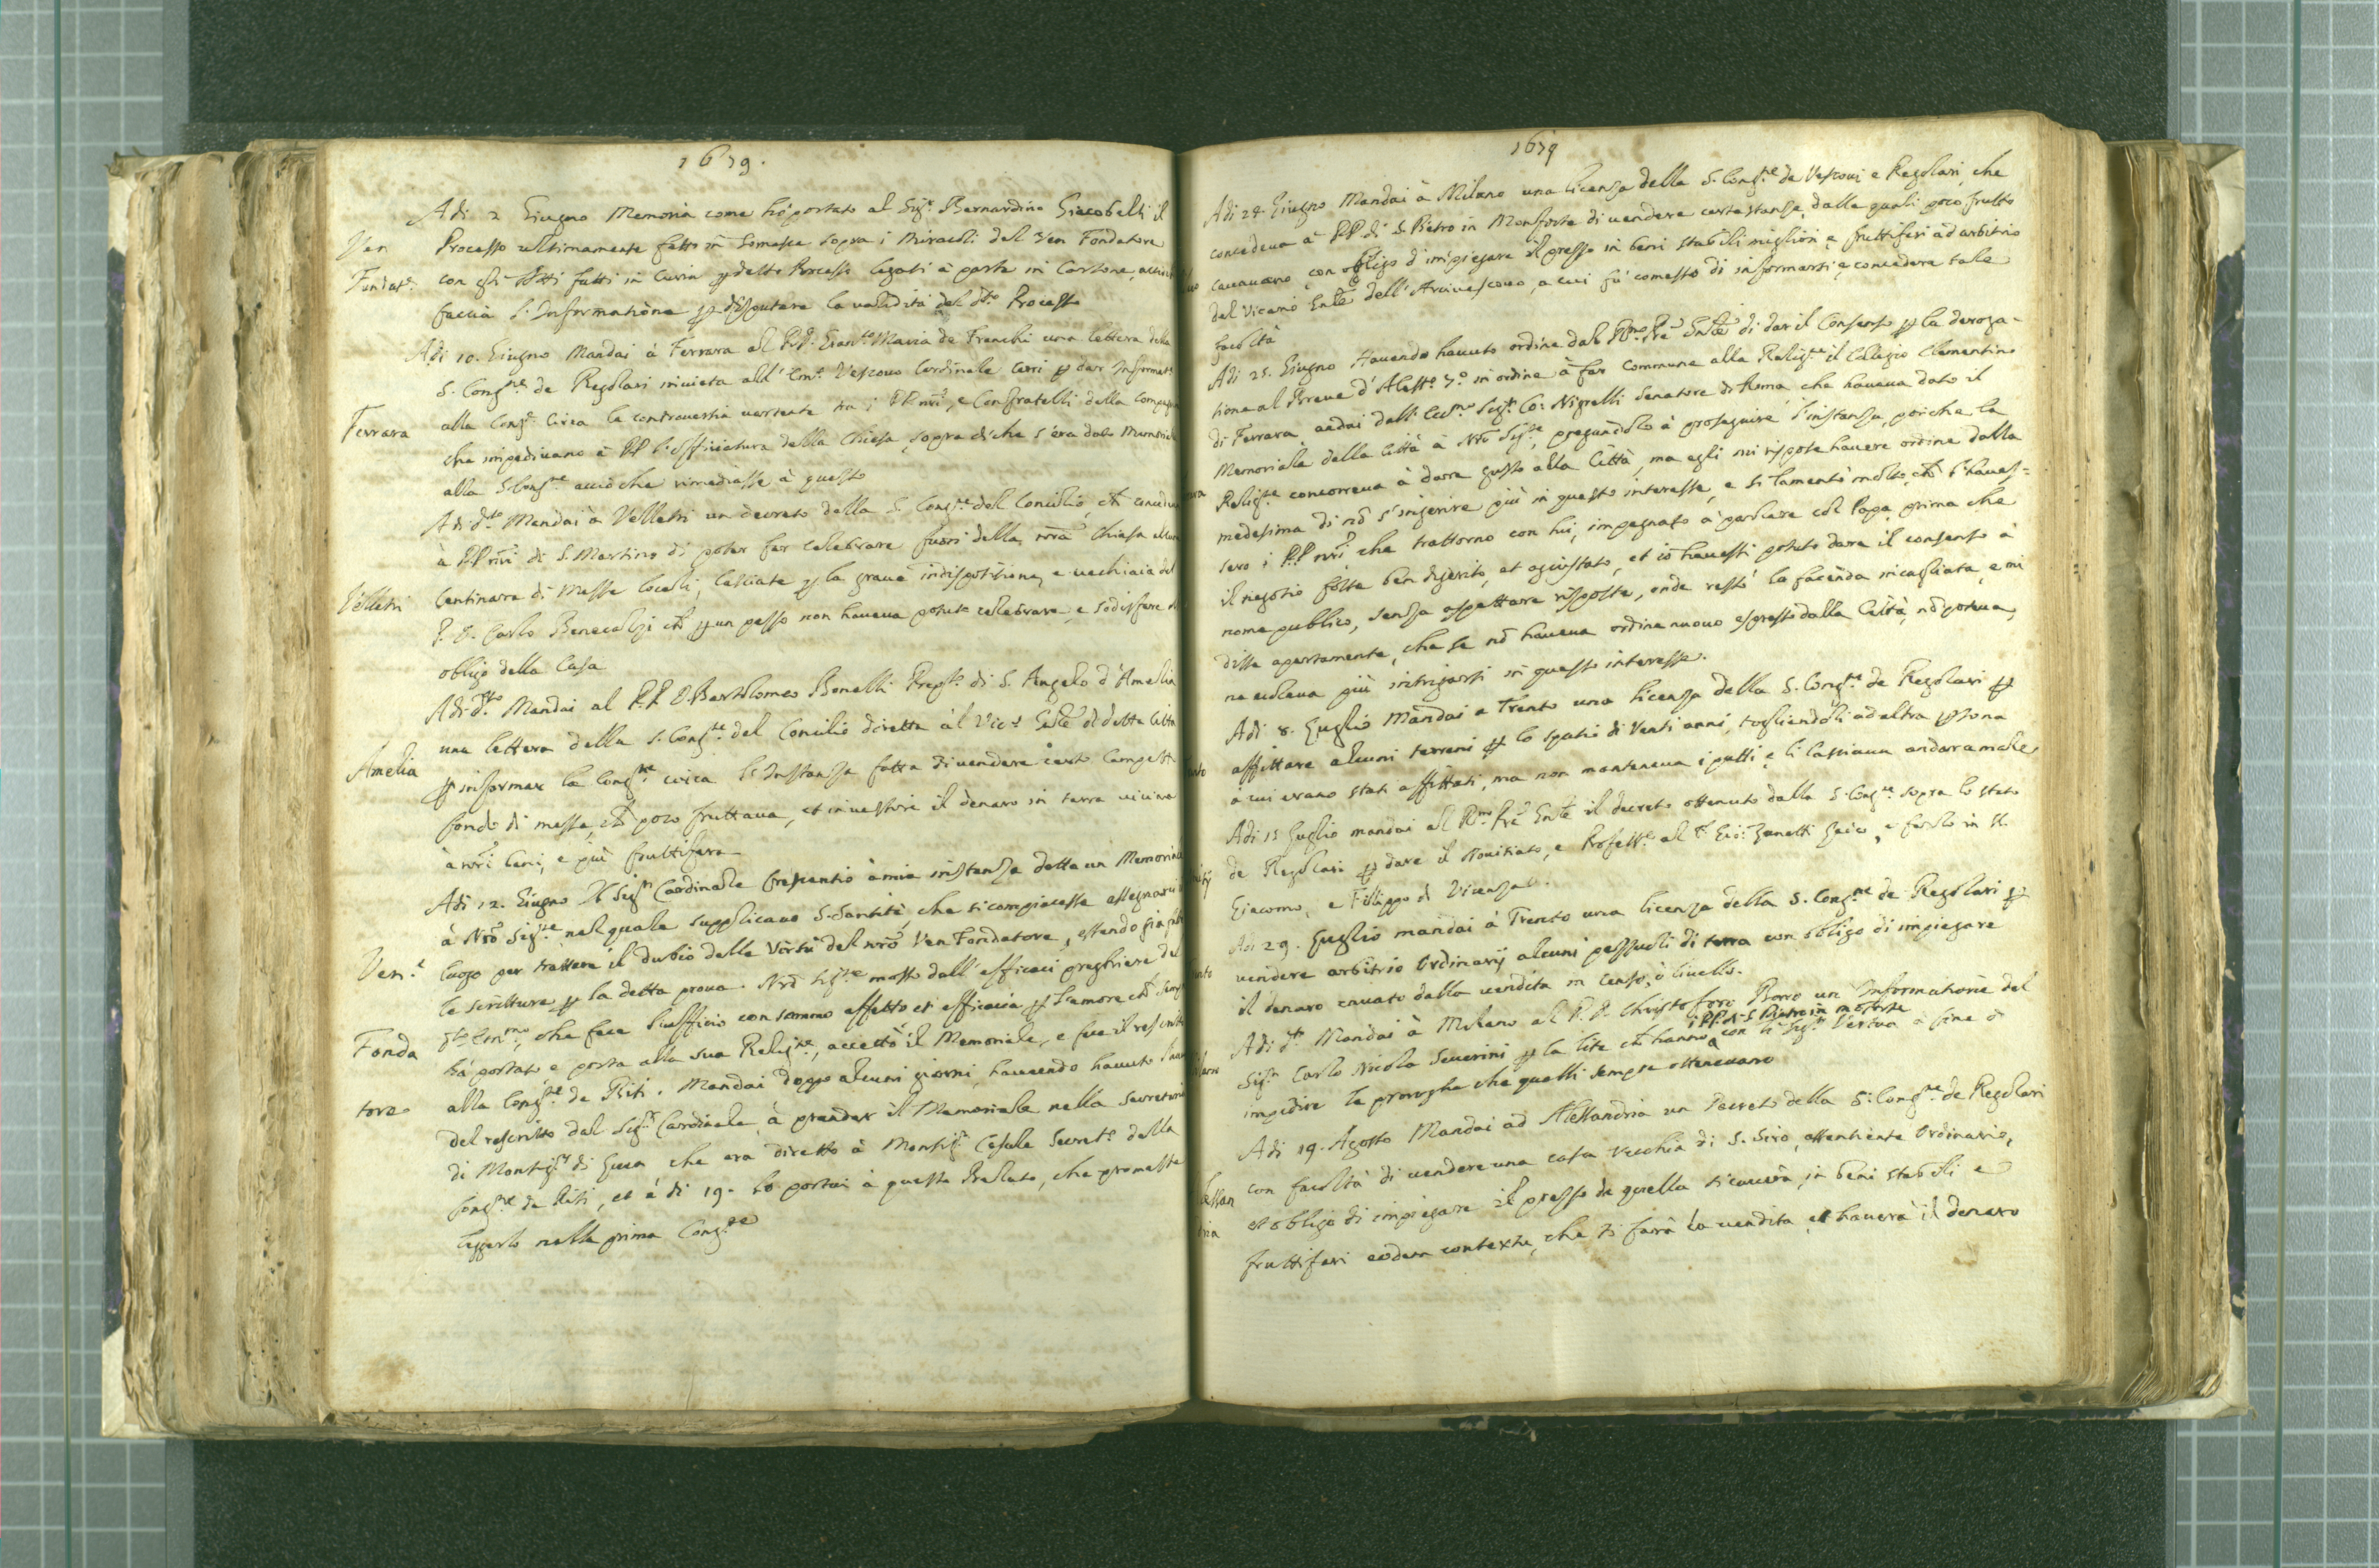 1679.
Adi 2 Giugno Memoria come hò portato al Sigr. Bernardino Giacobelli il
Ven Processo ultimamente fatto in Somasca sopra i Miracoli del Ven Fondatore
Fundatr. con gli Atti fatti in Curia ꝑ detto Processo legati à parte in Cartone, acciò
faccia l'Informatione ꝑ disputare la validità del dto. Processo
Adi 10. Giugno Mandai à Ferrara al P.D. Gian Maria de Franchi una lettera della
S. Congne. de Regolari inviata all'Emo. Vescovo Cardinale Cerri ꝑ dar Informate.
alla Congne. circa la controversia vertente tra i PP nri, e Confratelli della Compagnia
Ferrara che impedivano à PP l'offitiatura della Chiesa, sopra di che s'era dato Memoriale
alla S. Congne. acciò che rimediasse à questo
Adi dto. Mandai à Velletri un decreto della S. Congne. del Concilio, ch
à PP nri di S. Martino di poter far celebrare fuori della nra Chiesa alcune
Velletri Centinara di Messe locali, lasciate ꝑ la grave indispositione, e vechiaia del
P. D. Carlo Benecolzi ch ꝑ un pesso non haveva potuto celebrare, e sodisfare
obligo della Casa
Adi dto. Mandai al P.P. D. Bartolomeo Bonelli Prepto. di S. Angelo d'Amelia
una lettera della S. Congne. del Concilio diretta al Vico. Gnle di detta Città
Amelia ꝑ informar la Congne. circa l'Instanza fatta di vendere certo Campetto
fondo di messe, ch poco fruttava, et investire il denaro in terra vicina
à nri beni, e più fruttifera
Adi 12. Giugno Il Sigr Cardinale Crescentio à mia instanza dette un Memoriale
à Nro Sigre. nel quale supplicavo S. Santità, che si compiacesse assegnarci
Ven.e luogo per trattare il dubio delle Virtù del nro Ven Fondatore, essendo già
le scritture ꝑ la detta prova. Nro Sigre. mosso dall'efficaci preghiere del
dto. Emmo., che fece l'uffitio con sommo affetto et efficacia ꝑ l'amore ch sempre
Fonda hà portato e porta alla sua Religne., accettò il Memoriale, e fece il rescritto
alla Congne. de Riti. Mandai doppo alcuni giorni, havendo havuto
tore del rescritto dal Sigr. Cardinale à prender il Memoriale nella secreteria
di Monsigr. di Luca che era diretto à Monsigr. Casale Secreto. della
Congne. de Riti, et à di 19. lo portai à questo Prelato, che promesse
leggerlo nella prima Congne.
1679
Adi 24. Giugno Mandai à Milano una licenza della S. Congne. de Vescovi e Regolari, che
concedeva à PP di S. Pietro in Monforte di vendere certe stanze, dalle quali poco frutto
cavavano, con obligo d'impiegare il prezzo in beni stabili migliori e fruttiferi ad arbitrio
del Vicario Gnle dell'Arcivescovo, a cui fù comesso di informarsi e concedere tale
facoltà
Adi 25. Giugno Havendo havuto ordine dal Rmo. Pre Gnle di dar il Consenso ꝑ la deroga-
tione al Breve d'Alesso. 7o. in ordine à far Commune alla Religne. il Collegio Clementino
di Ferrara andai dall' Sigr. Co: Nigrelli Senatore di Roma, che haveva dato il
Memoriale della Città à Nro Sigre., pregandolo à proseguire l'instanza, poiche la
Religne. concorreva à dare gusto alla Città, ma egli mi rispose havere ordine dalla
medesima di nõ s'ingerire più in questo interesse, e si lamentò molto, ch l'haves=
sero i PP nri che trattorno con lui, impegnato à parlare col Papa prima che
il negotio fosse ben digerito, et agiustato, et io havessi potuto dare il consenso à
nome publico, senza aspettare risposte, onde restò la facenda incagliata, e mi
disse apertamente, che se nõ haveva ordine nuovo espresso dalla Città, nõ poteva,
ne voleva più intrigarsi in questo interesse.
Adi 8. Luglio Mandai a Trento una licenza della S. Congne. de Regolari ꝑ
affittare alcuni terreni ꝑ lo spatio di Venti anni, togliendoli ad altra ꝑsona
à cui erano stati affittati, ma non manteneva i patti e li lasciava andar a male
Adi 15 Luglio mandai al Rmo. Pre Gnle il decreto ottenuto dalla S. Congne. sopra lo stato
de Regolari ꝑ dare il Novitiato, e Professe. al F. Gio: Zanetti Laico, e farlo in SS.
Giacomo, e Filippo di Vicenza.
Adi 29. Luglio mandai à Trento una licenza della S. Congne. de Regolari ꝑ
vendere arbitrio Ordinarij alcuni pezzuoli di terra con obligo di impiegare
il denaro cavato dalla vendita in Censo, ò livello.
Adi dto. Mandai à Milano al P. D. Christoforo Borro un Informatione del
i PP. di S. Pietro in monforte
Sigr. Carlo Nicola Severini ꝑ la lite ch hanno con li Sigri Vertua à fine d
impedire le proroghe che quelli sempre ottenevano
Adi 19. Agosto Mandai ad Alessandria un Decreto della S. Congne. de Regolari
con facoltà di vendere una casa Vecchia di S. Siro, assentiente Ordinario,
lessan et obligo di impiegare il prezzo che da quella si caverà, in beni stabili e
dria fruttiferi eodem contextu, che si farà la vendita et haverà il denaro